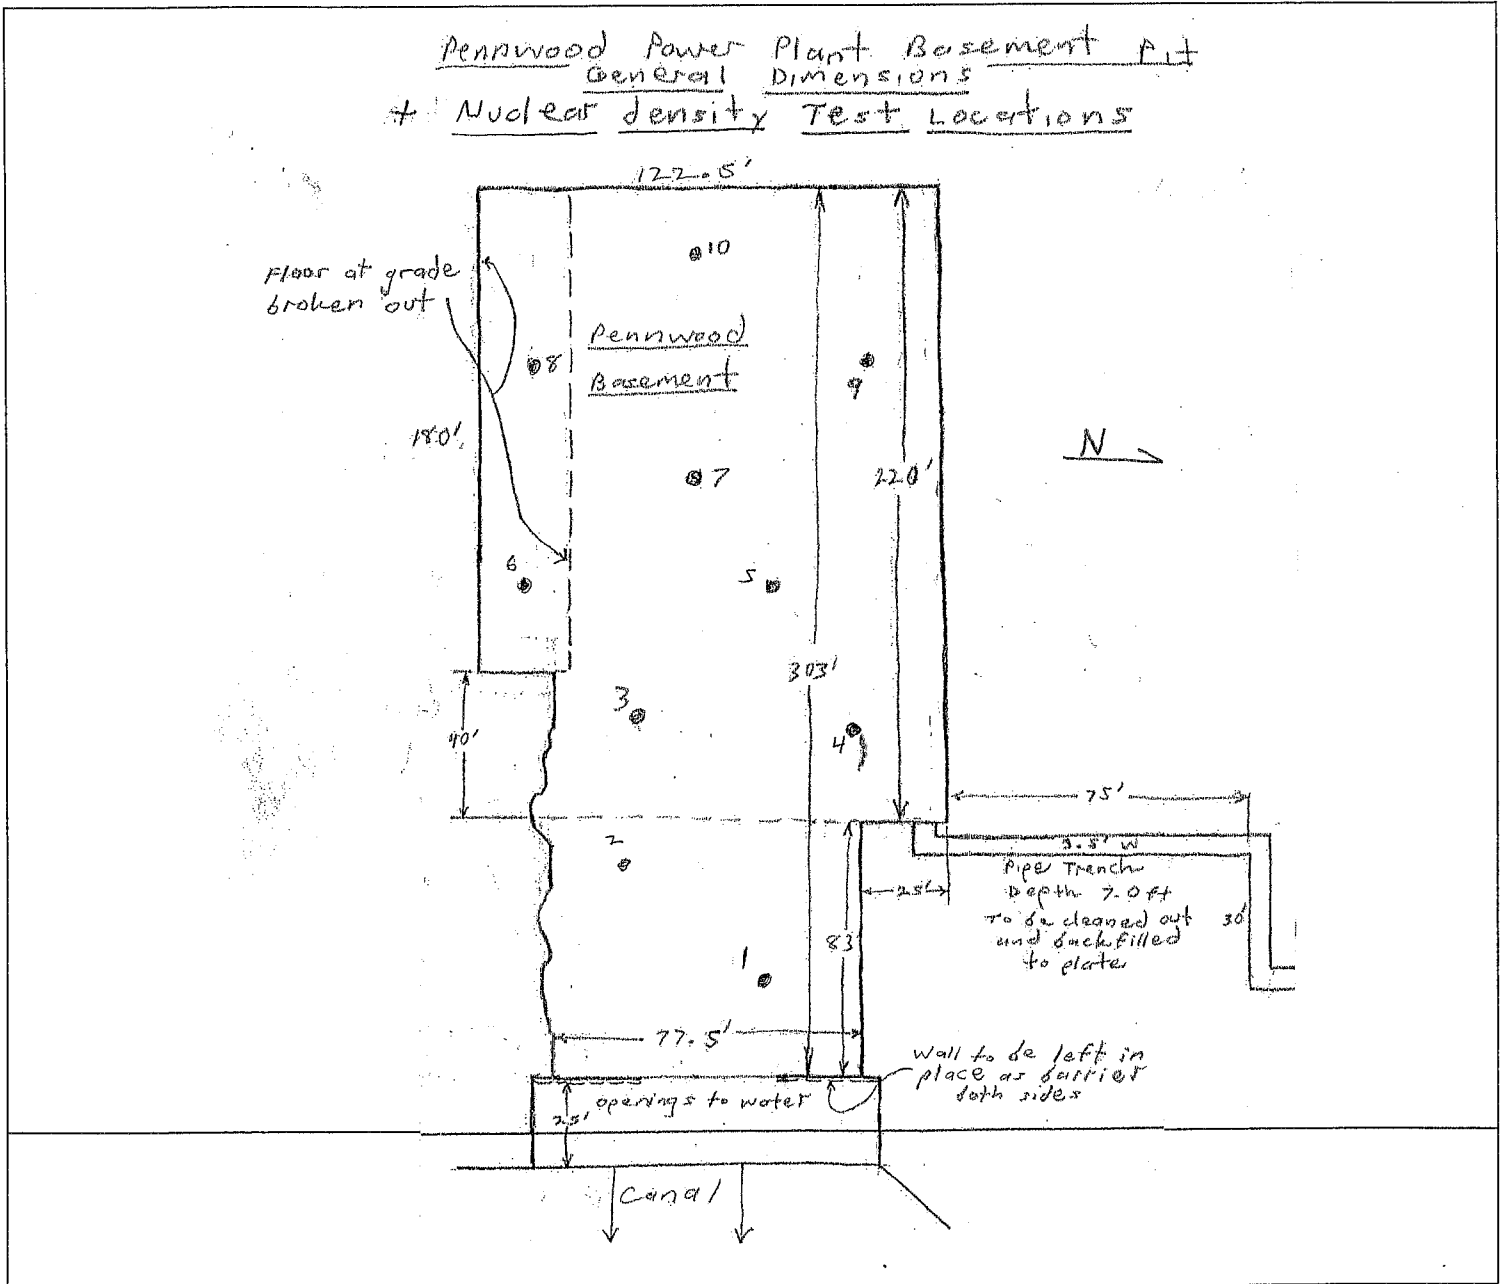 Pennwood Power Plant Basement Pit
General Dimensions
+ Nuclear density Test Locations
122.5'
10
Floor at grade
broken out
Pennwood
Basement
8
9
180'
N
7
220'
6
5
303'
3
4
40'
75'
2
3.5' W
Pipe Trench
Depth 7.0 ft
To be cleaned out
and backfilled
to plater
25'
30'
83'
1
77.5'
Wall to be left in
place as barrier
both sides
openings to water
25'
Canal